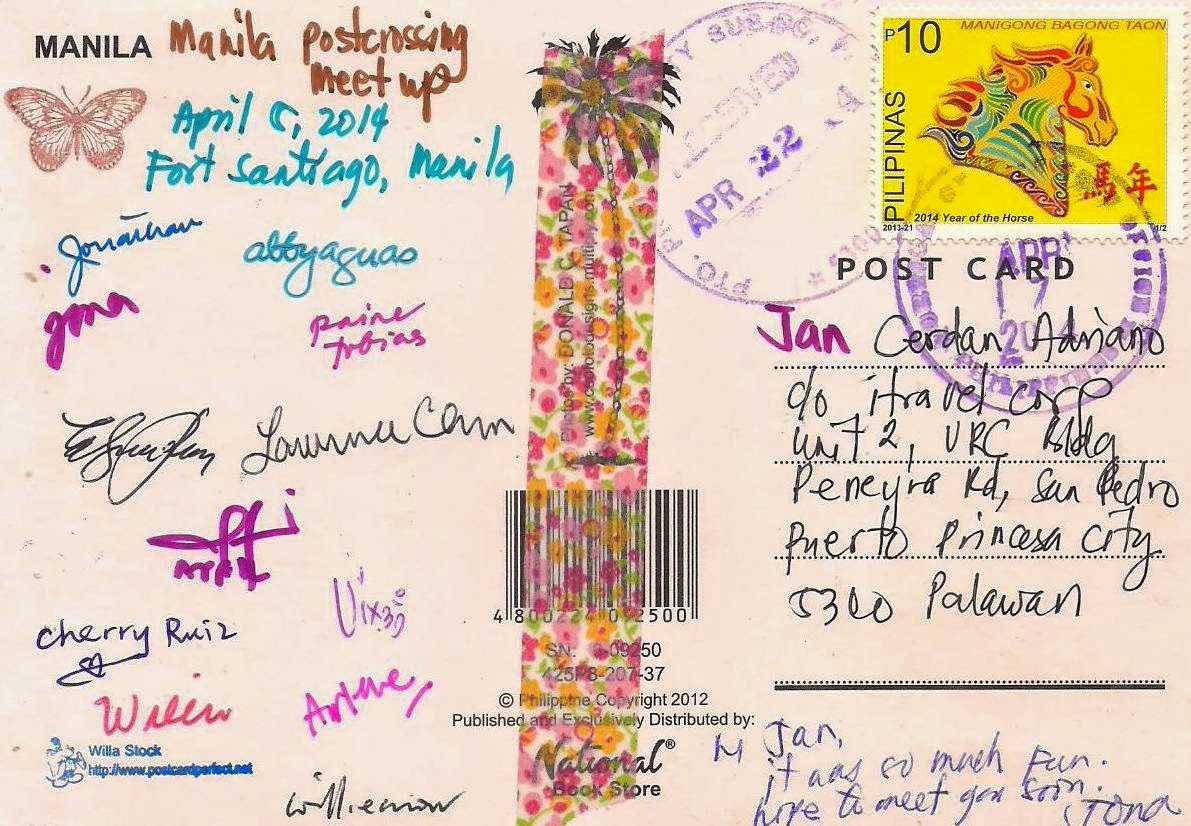 MANILA
Manila postcrossing
meet up
April 5, 2014
Fort Santiago, Manila
Jonathan
abbyaguas
Jona
Paine
Tobias
cherry Ruiz
Arlene
Willa Stock
http://www.postcardperfect.net
Photos by: DONALD C. TAPAN
4 800224 092500
SN:
09250
425PB-207-37
© Philippine Copyright 2012
Published and Exclusively Distributed by:
National®
Book Store
RECEIVED
APR 22
P10
MANIGONG BAGONG TAON
PILIPINAS
馬年
2014 Year of the Horse
2013-21
1/2
APR
17
2014
POST CARD
Jan Cerdan Adriano
c/o itravel corp
unit 2, VRC Bldg
Peneyra Rd, San Pedro
Puerto Princesa City
5300 Palawan
Hi Jan,
it was so much fun.
hope to meet you soon.
Jona